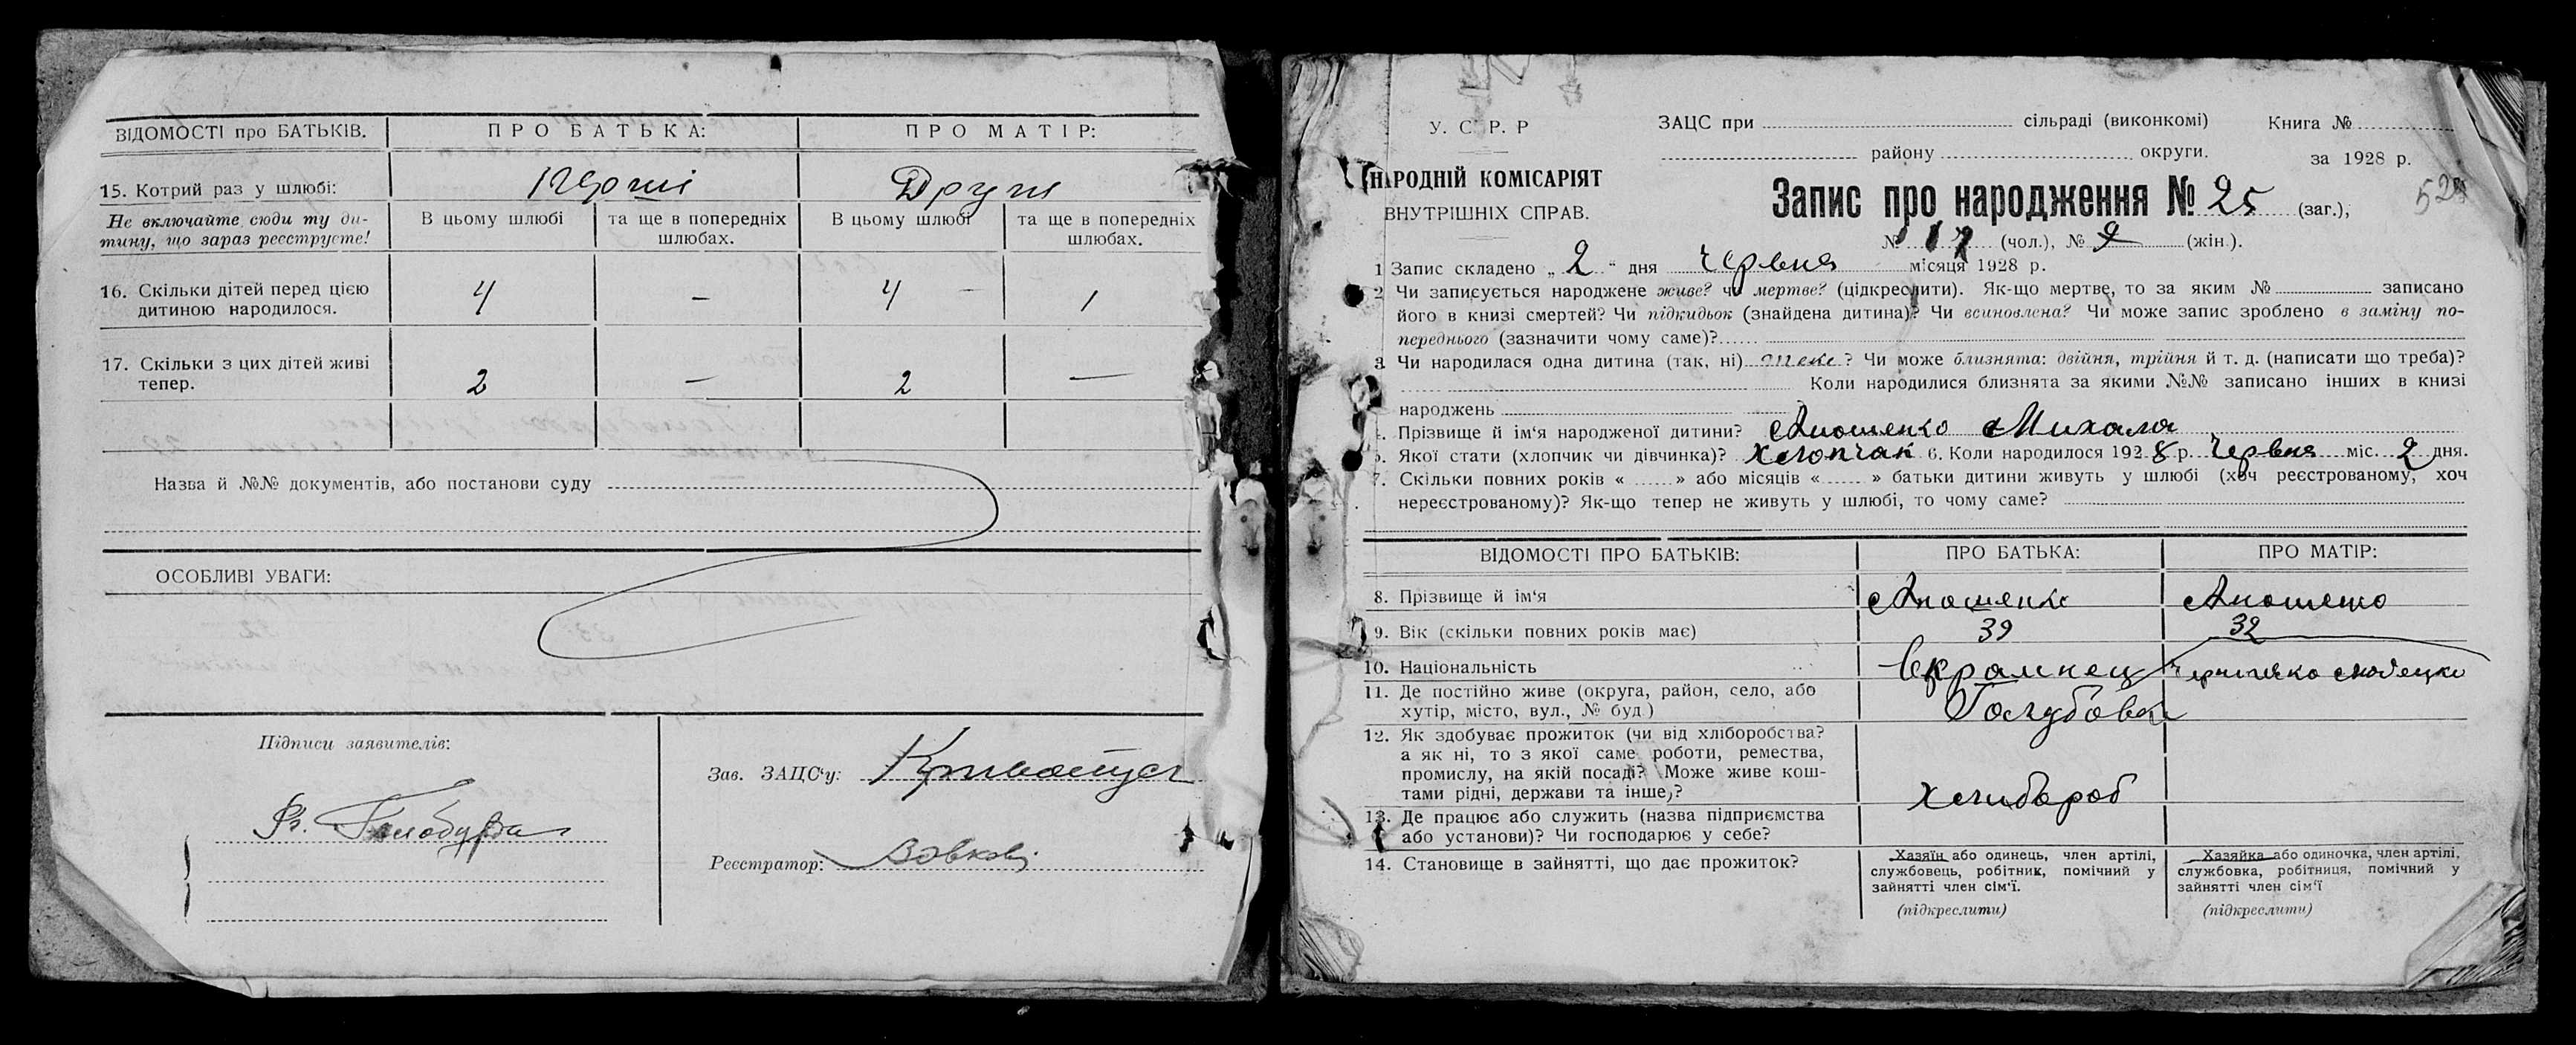 ВІДОМОСТІ про БАТЬКІВ. ПРО БАТЬКА: ПРО МАТІР:
15. Котрий раз у шлюбі: Перші Други
Не включайте сюди ту ди- В цьому шлюбі та ще в попередніх В цьому шлюбі та ще в попередніх
тину, що зараз реєструєте! шлюбах. шлюбах.
16. Скільки дітей перед цією 4 — 4 — 1
дитиною народилося.
17. Скільки з цих дітей живі 2 — 2 —
тепер.
Назва й №№ документів, або постанови суду
ОСОБЛИВІ УВАГИ:
Підписи заявителів:
Зав. ЗАЦС'у:
Реєстратор:
У. С. Р. Р
НАРОДНІЙ КОМІСАРІЯТ
ВНУТРІШНІХ СПРАВ.
ЗАЦС при сільраді (виконкомі) Книга №
району округи. за 1928 р.
Запис про народження № 25 (заг.),
№ 17 (чол.), № (жін.).
1 Запис складено „ 2 “ дня червня місяця 1928 р.
2 Чи записується народжене живе? чи мертве? (підкреслити). Як-що мертве, то за яким № записано
його в книзі смертей? Чи підкидьок (знайдена дитина)? Чи всиновлена? Чи може запис зроблено в заміну по-
переднього (зазначити чому саме)?
3 Чи народилася одна дитина (так, ні) ? Чи може близнята: двійня, трійня й т. д. (написати що треба)?
Коли народилися близнята за якими №№ записано інших в книзі
народжень
Прізвище й ім'я народженої дитини? Аношенко Михала
Якої стати (хлопчик чи дівчинка)? Хлопчак 6. Коли народилося 1928 р. Червня міс. 2 дня.
7. Скільки повних років « » або місяців « » батьки дитини живуть у шлюбі (хоч реєстрованому, хоч
нереєстрованому)? Як-що тепер не живуть у шлюбі, то чому саме?
ВІДОМОСТІ ПРО БАТЬКІВ: ПРО БАТЬКА: ПРО МАТІР:
8. Прізвище й ім'я Аношенко Аношенко
9. Вік (скільки повних років має) 39 32
10. Національність Украинец
11. Де постійно живе (округа, район, село, або
хутір, місто, вул., № буд) Голубовка
12. Як здобуває прожиток (чи від хліборобства?
а як ні, то з якої саме роботи, ремества,
промислу, на якій посаді? Може живе кош-
тами рідні, держави та інше)? Хлибороб
13. Де працює або служить (назва підприємства
або установи)? Чи господарює у себе?
14. Становище в зайнятті, що дає прожиток? Хазяїн або одинець, член артілі, Хазяйка або одиночка, член артілі,
службовець, робітник, помічний у службовка, робітниця, помічний у
зайнятті член сім'ї. зайнятті член сім'ї
(підкреслити) (підкреслити)